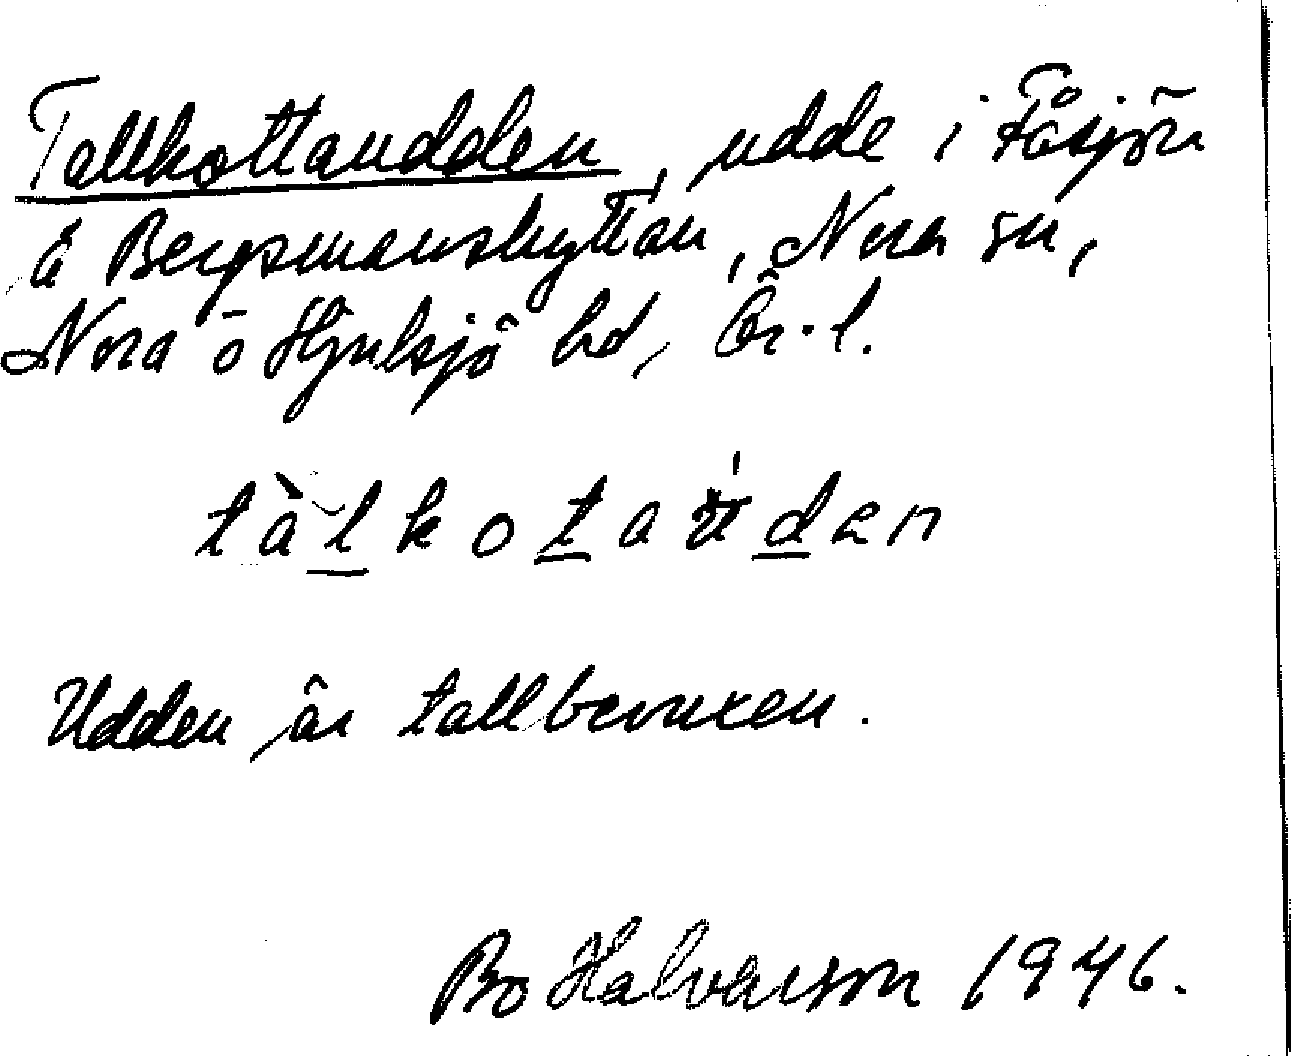 Tallkottaudden, udde i Fåsjön
å Bergsmanshyttan, Nora sn,
Nora o Hjulsjö hd, Ör. l.
tàlkotaúdən
Udden är tallbevuxen.
Bo Halvarson 1946.